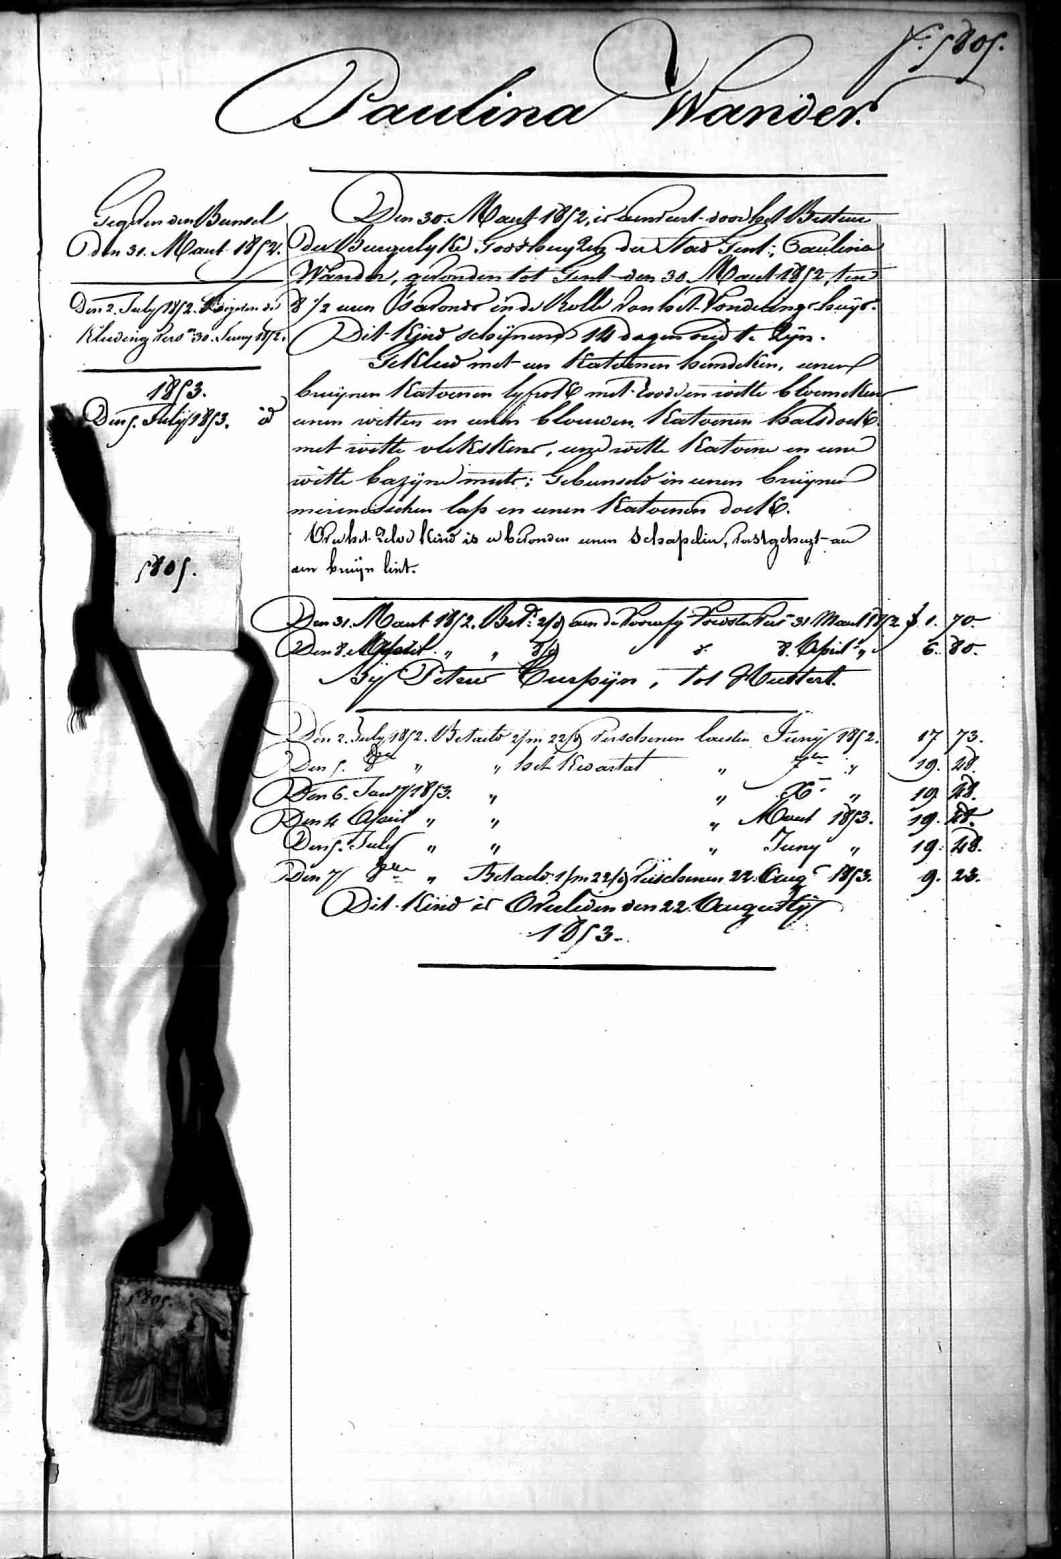 N. 5805.
Paulina Wander.
Gegeven den Bunsel
den 31. Maart 1852.
Den 2. July 1852. de
Kleeding vers. 30. Juny 1852.
1853.
Den 5. July 1853. id
Den 30. Maart 1852, is aenveert door het Bestuur
der Burgerlyke Godshuyzen der Stad Gent; Paulina
Wander, gevonden tot Gent den 30. Maart 1852, ten
8 1/2 uren s'avonds in de Rolle van het Vondelingshuys.
Dit Kind schijnend 14 dagen oud te zijn.
Gekleed met een Katoenen hemdeken, eenen
bruynen Katoenen lyfrok met roode en witte bloemekens
eenen witten en eenen blouwen Katoenen halsdoek
met witte vlekskens, eene witte Katoene en eene
witte bazijne muts; Gebunseld in eenen bruynen
merinosschen lap en eenen Katoenen doek.
Over het zelve Kind is er bevonden eenen Schapelier, vastgehegt aen
een bruyn lint.
Den 31. Maart 1852. Bet. 2/9 aen de Voedster 31 Maart 1852 f 1. 70.
Den 8. April " " 8/9 8. April " 6. 80.
Bij Petrus Curpijn, tot Huttert.
Den 2. July 1852. Betaeld 2/m 22/9 verschenen laesten Juny 1852. 17 73.
Den 5. 8bre " " het Kwartael " 7ber " 19. 28.
Den 6. Janry 1853. " " Xber " 19. 28.
Den 4 April " " " Maert 1853. 19. 28.
Den 5. July " " " Juny " 19. 28.
Den 7 8bre " Betaeld 1/m 22/9 verschenen 22. Aug. 1853. 9. 23.
Dit Kind is Overleden den 22. Augusty
1853.
5805.
5805.